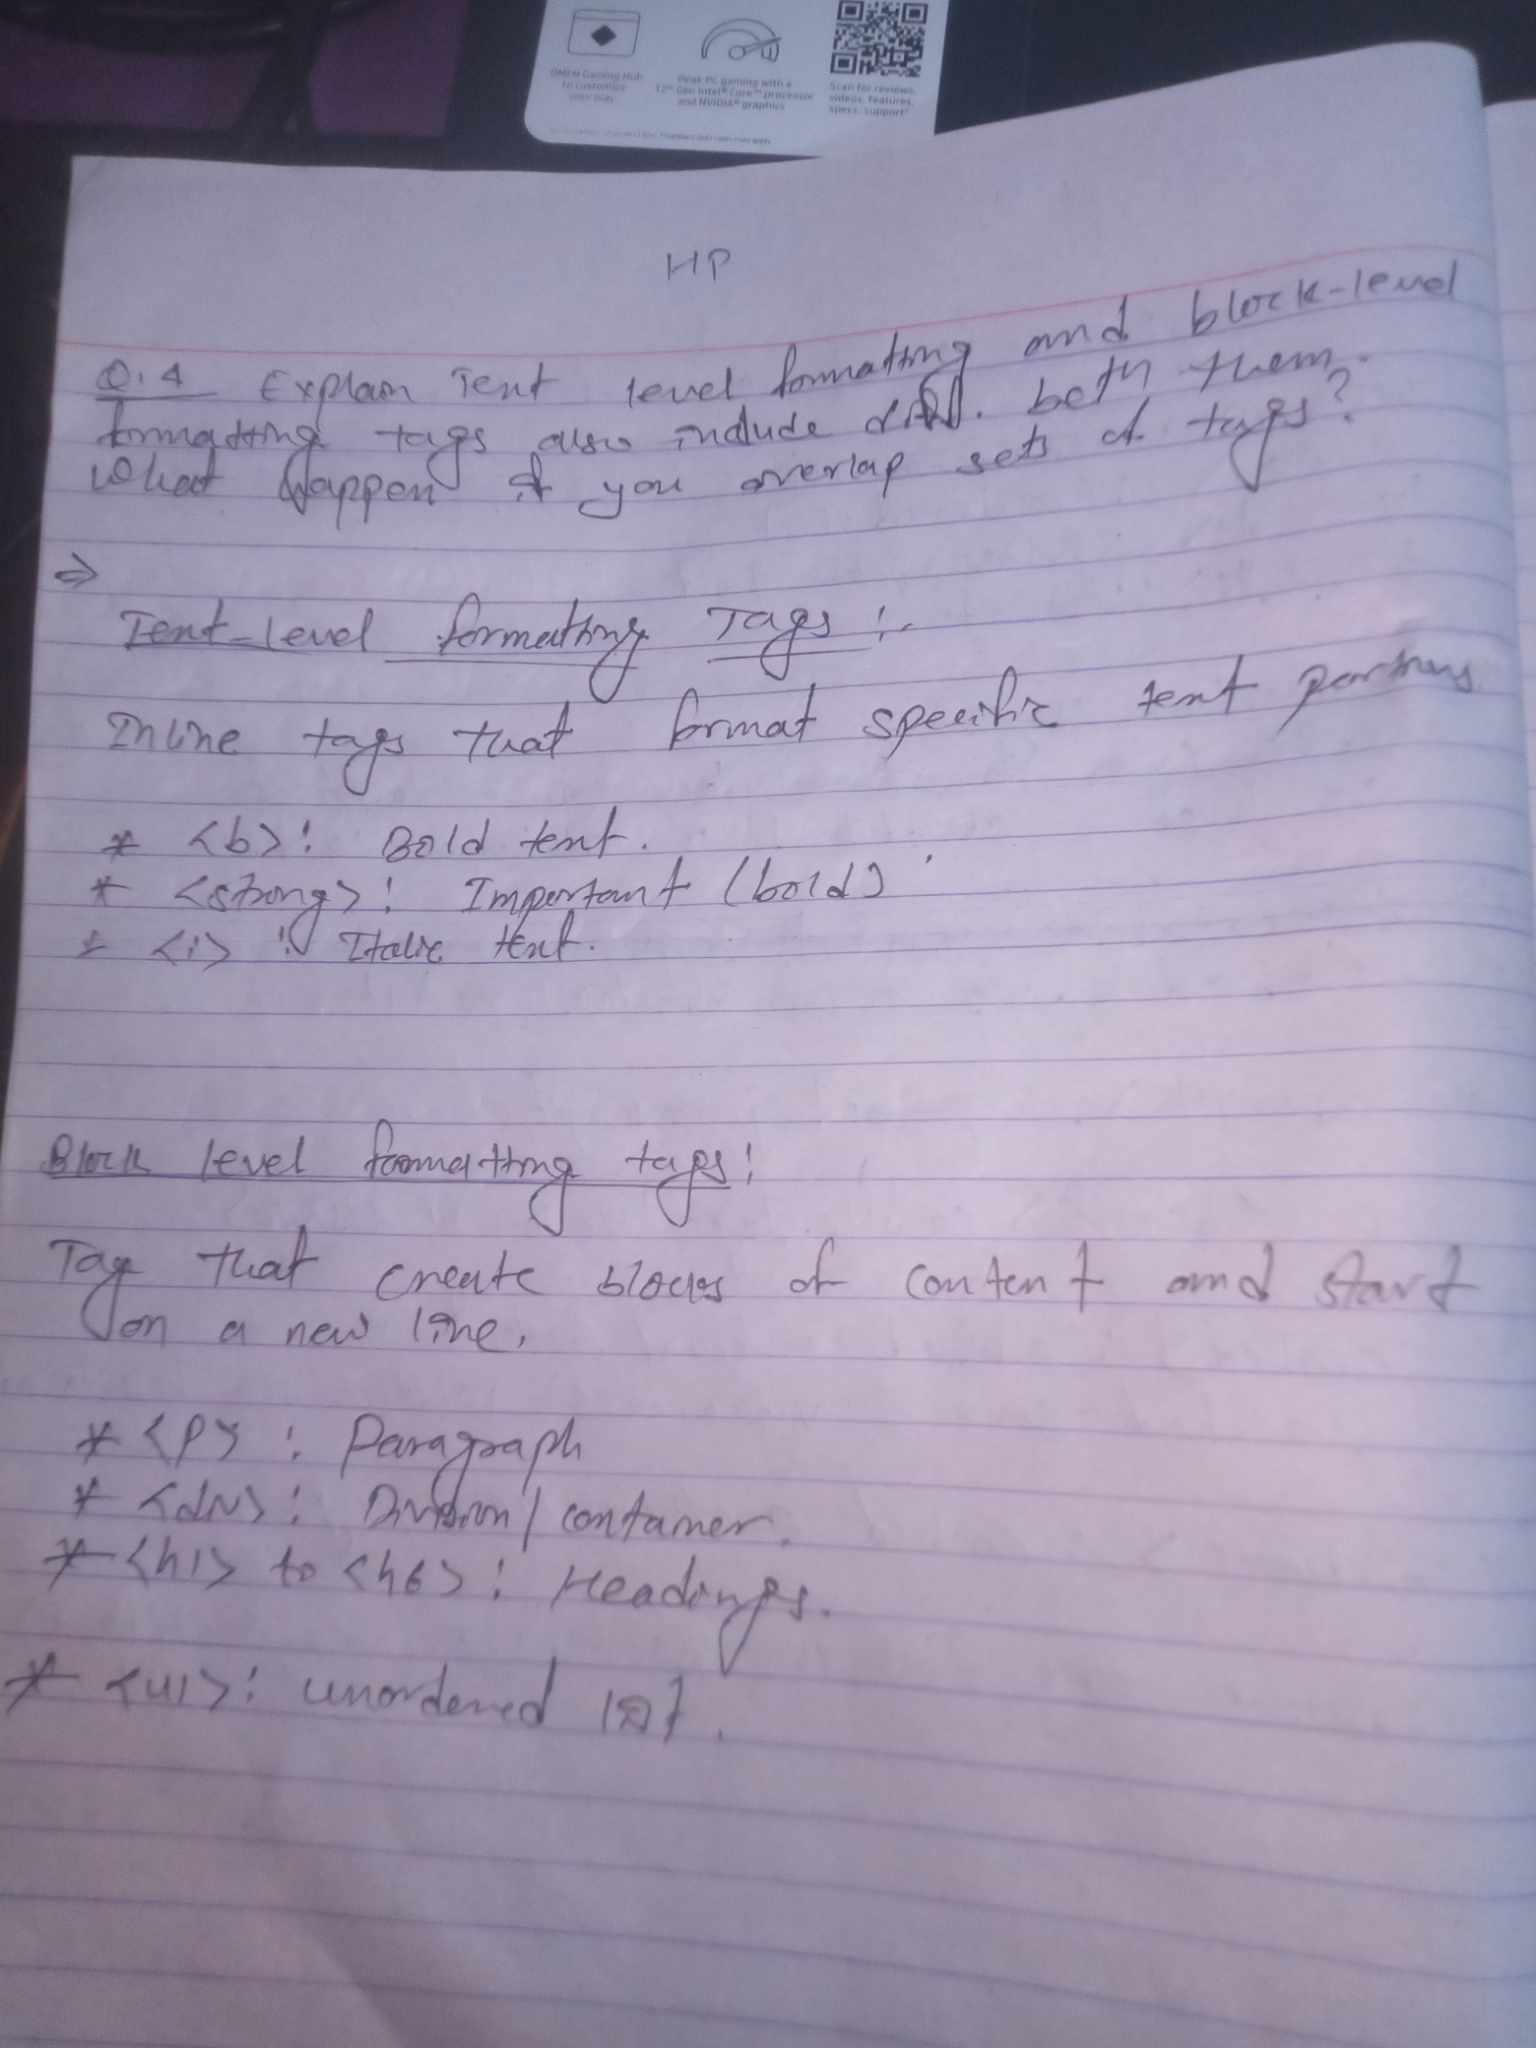 OMEN Gaming Hub
to customize
Peak PC gaming with a
12th Gen Intel® Core™ processor
and NVIDIA® graphics
Scan for reviews,
videos, features,
specs, support*
HP
Q.4 Explain Text level formatting and block-level
formatting tags also include diff. both them.
What happen if you overlap sets of tags?
⇒
Text-level formatting Tags :-
Inline tags that format specific text portions
* <b>: Bold text.
* <strong>: Important (bold)
* <i> : Italic text.
Block level formatting tags:
Tag that create blocks of content and start
on a new line.
* <p> : Paragraph
* <div>: Division/container.
* <h1> to <h6>: Headings.
* <ul>: unordered list.